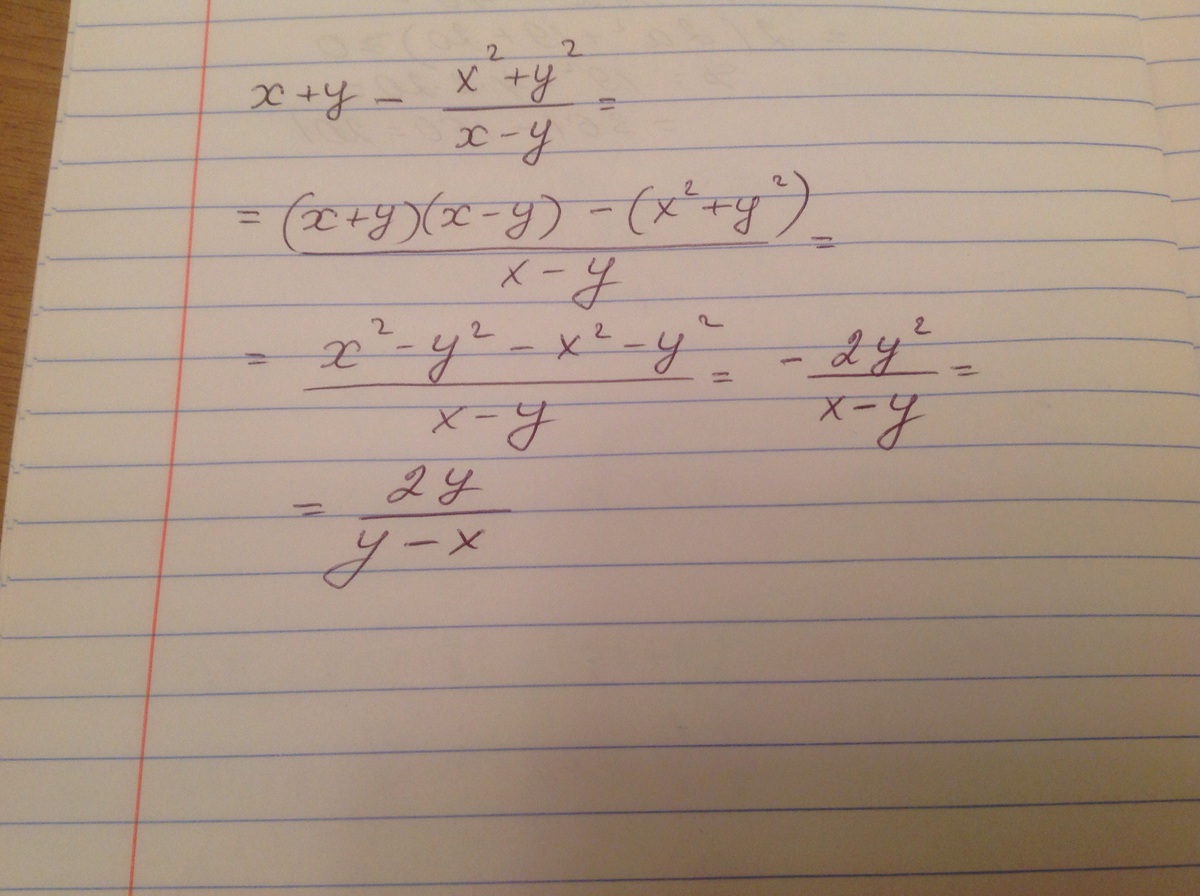 x + y - \frac{x^2 + y^2}{x - y} =
= \frac{(x+y)(x-y) - (x^2 + y^2)}{x - y} =
= \frac{x^2 - y^2 - x^2 - y^2}{x - y} = -\frac{2y^2}{x - y} =
= \frac{2y}{y - x}